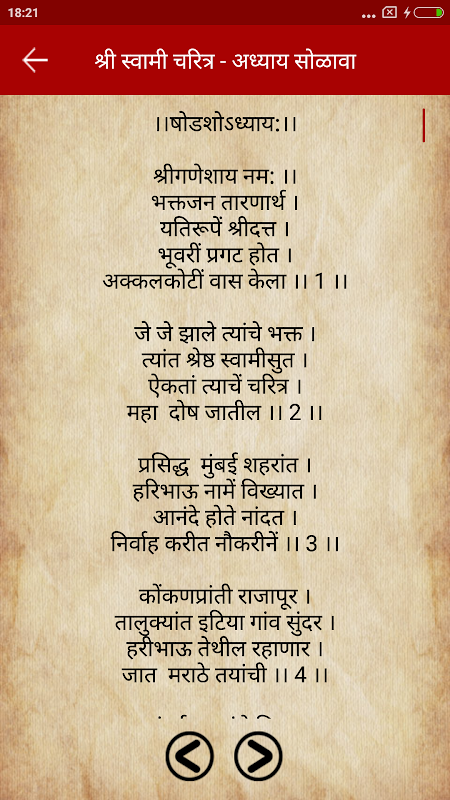 18:21
श्री स्वामी चरित्र - अध्याय सोळावा
।।षोडशोऽध्याय:।।
श्रीगणेशाय नम: ।।
भक्तजन तारणार्थ ।
यतिरूपें श्रीदत्त ।
भूवरीं प्रगट होत ।
अक्कलकोटीं वास केला ।। 1 ।।
जे जे झाले त्यांचे भक्त ।
त्यांत श्रेष्ठ स्वामीसुत ।
ऐकतां त्याचें चरित्र ।
महा दोष जातील ।। 2 ।।
प्रसिद्ध मुंबई शहरांत ।
हरिभाऊ नामें विख्यात ।
आनंदे होते नांदत ।
निर्वाह करीत नौकरीनें ।। 3 ।।
कोंकणप्रांती राजापूर ।
तालुक्यांत इटिया गांव सुंदर ।
हरीभाऊ तेथील रहाणार ।
जात मराठे तयांची ।। 4 ।।